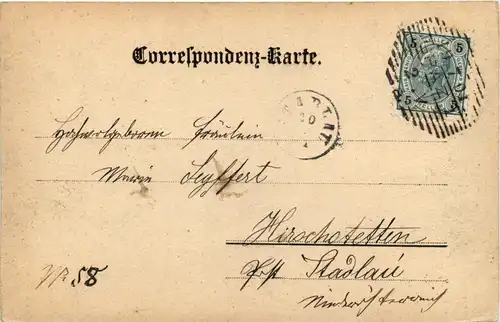 Correspondenz-Karte.
5 5
5 5
STADLAU
20
Hochwolgeboren Fräulein
Marie Seyffert
Hirschstetten
Post Stadlau
Niederösterreich
Nr. 58